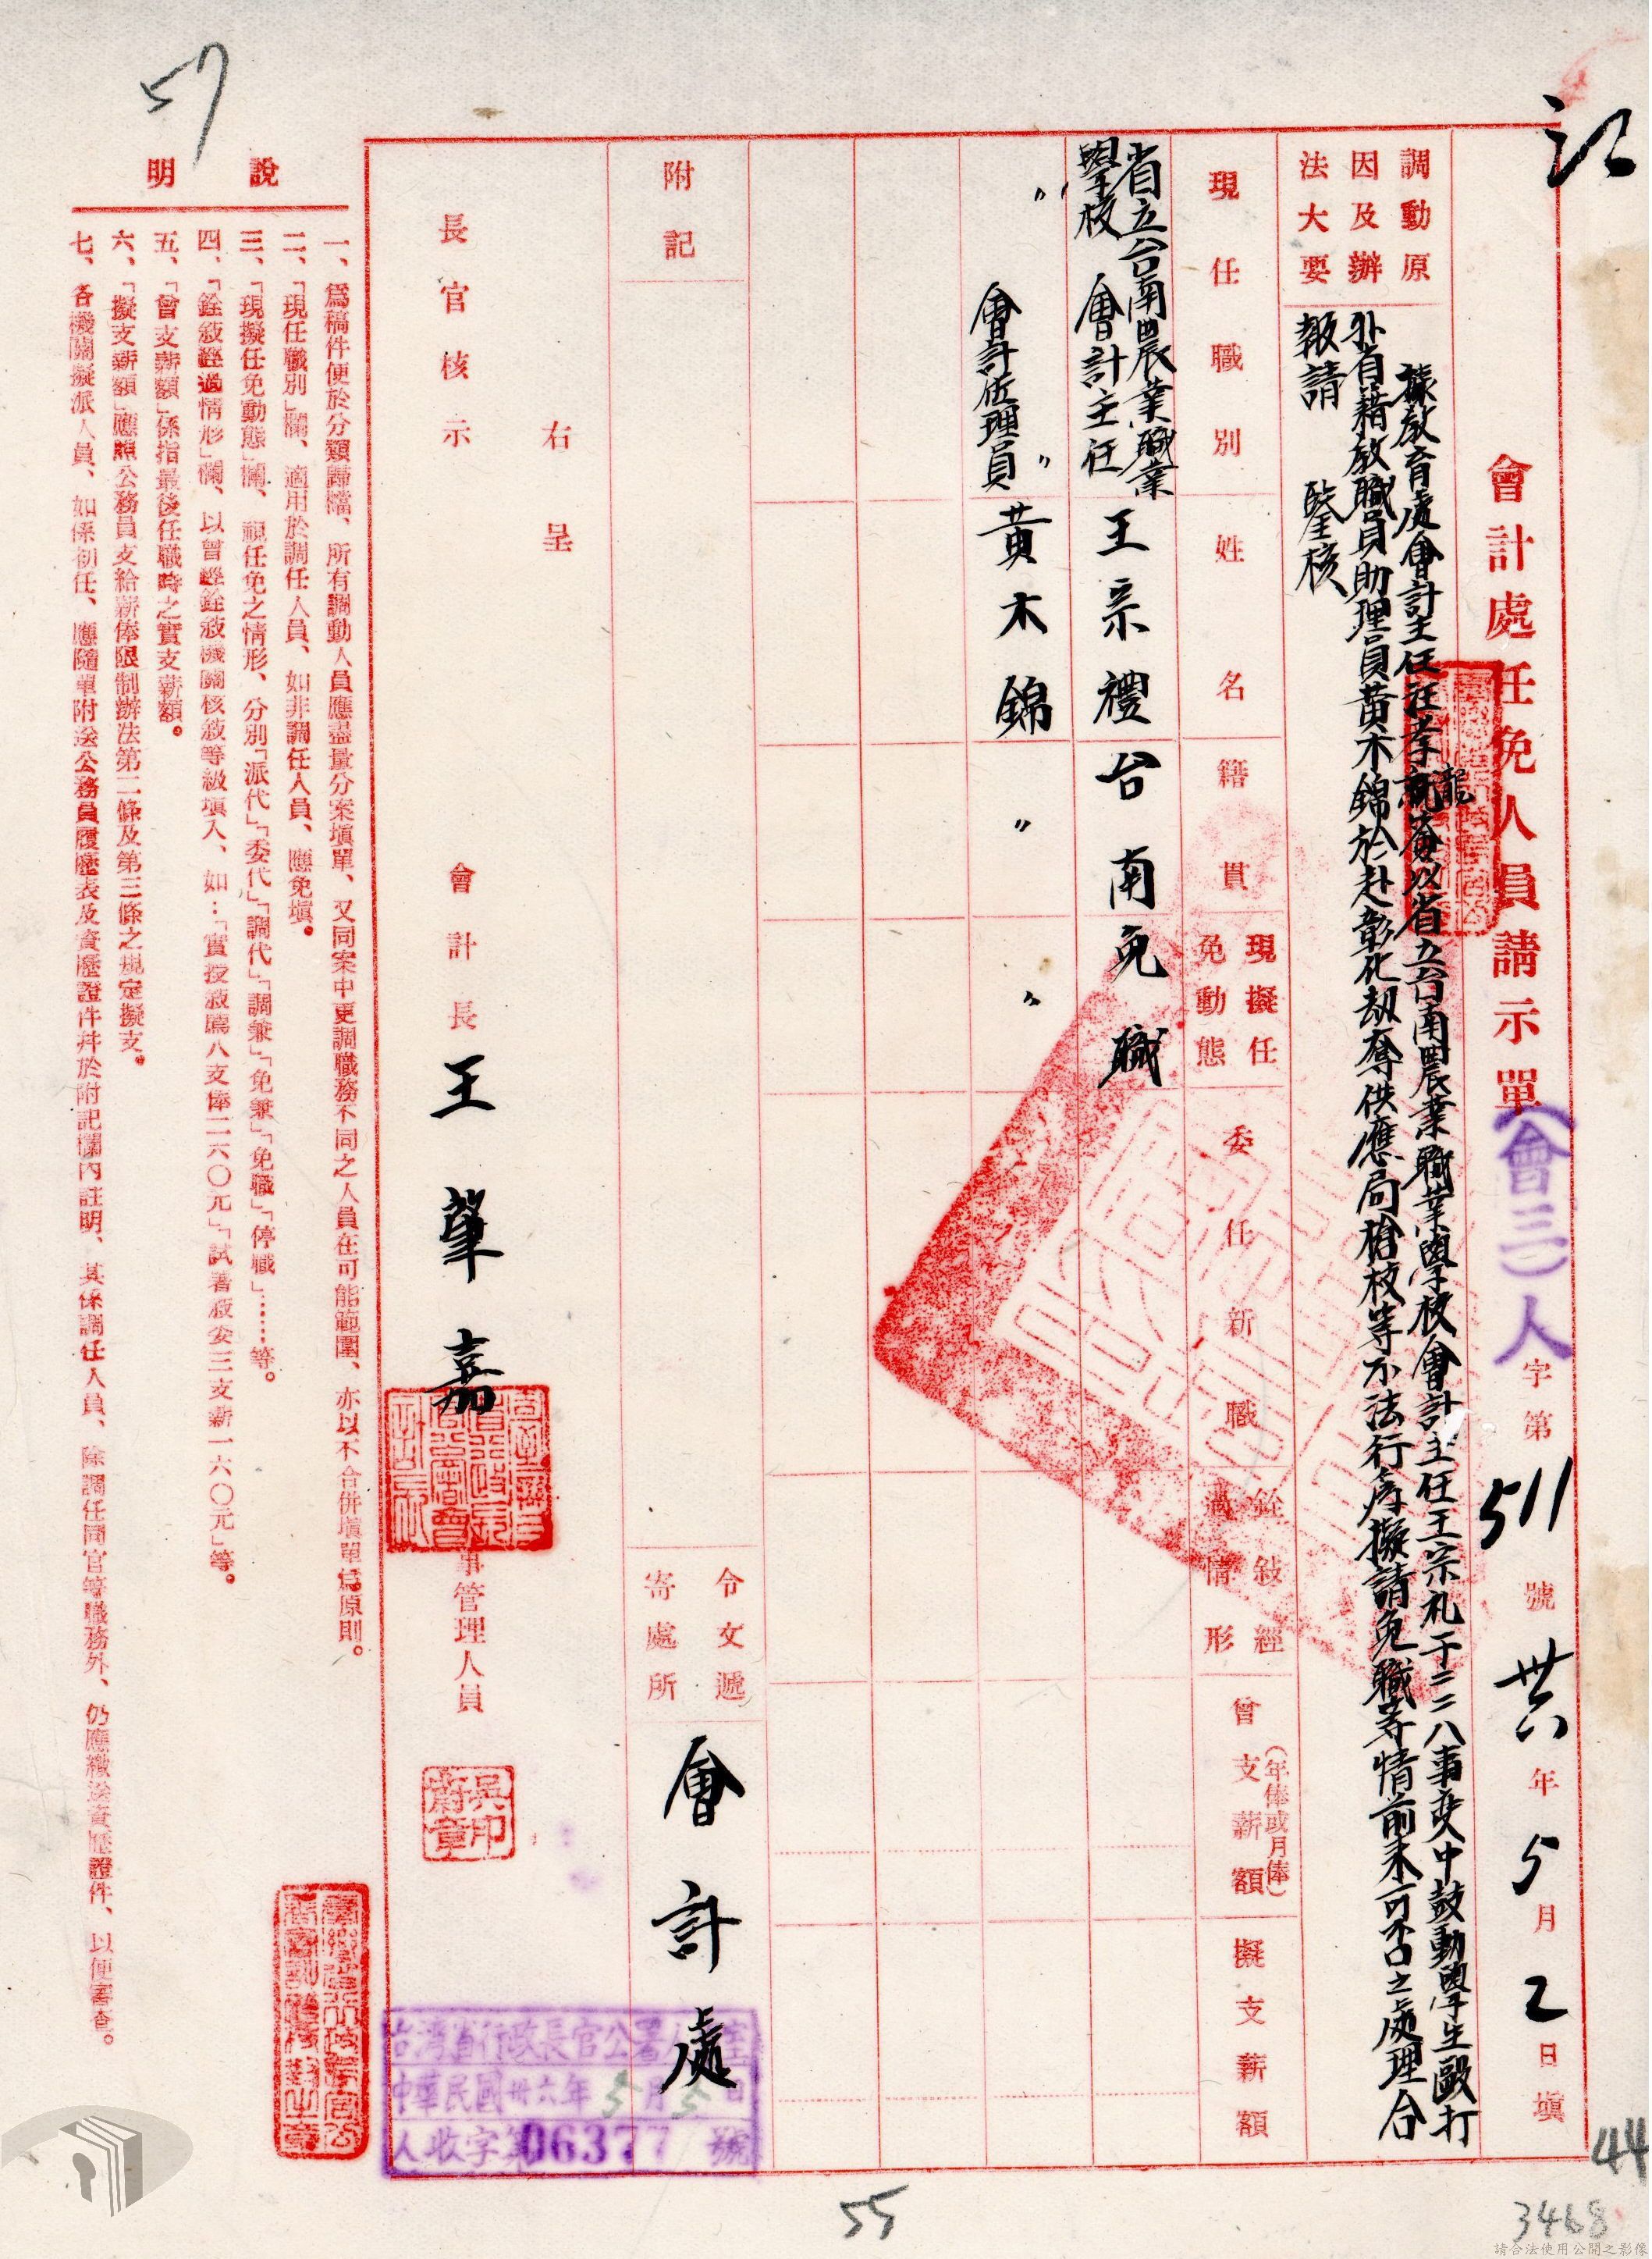 會計處任免人員請示單
(會三)人字第511號 卅六年5月2日填
調動原因及辦法大要
據教育處會計主任汪孝龍簽以省立台南農業職業學校會計主任王宗礼于二二八事变中鼓動學生毆打
外省籍教職員助理員黃木錦於赴彰化劫奪供應局槍枝等不法行為擬請免職等情前來可否之處理合
報請 鑒核
現任職別
姓名
籍貫
現擬任免動態
委任新職
銓敍經過情形
曾支薪額(年俸或月俸)
擬支薪額
省立台南農業職業學校 會計主任 王宗禮 台南 免職
〃 〃 會計佐理員 黃木錦 〃 〃
附記
令文遞寄處所 會計處
右呈
長官核示
會計長 王肇嘉
事管理人員
吳印
台灣省行政長官公署
中華民國卅六年5月5日
人收字第06377號
說明
一、爲稿件便於分類歸檔、所有調動人員應盡量分案塡單、又同案中更調職務不同之人員在可能範圍、亦以不合併塡單爲原則。
二、「現任職別」欄、適用於調任人員、如非調任人員、應免塡。
三、「現擬任免動態」欄、視任免之情形、分別「派代」「委代」「調代」「調兼」「免兼」「免職」「停職」……等。
四、「銓敍經過情形」欄、以曾經銓敍機關核敍等級塡入、如:「實授敍薦八支俸二六〇元」「試署敍委三支薪一六〇元」等。
五、「曾支薪額」係指最後任職時之實支薪額。
六、「擬支薪額」應照公務員支給薪俸限制辦法第二條及第三條之規定擬支。
七、各機關擬派人員、如係初任、應隨單附送公務員履歷表及資歷證件幷於附記欄內註明、其係調任人員、除調任同官等職務外、仍應繳送資歷證件、以便審查。
57
55
44
3468
請合法使用公開之影像